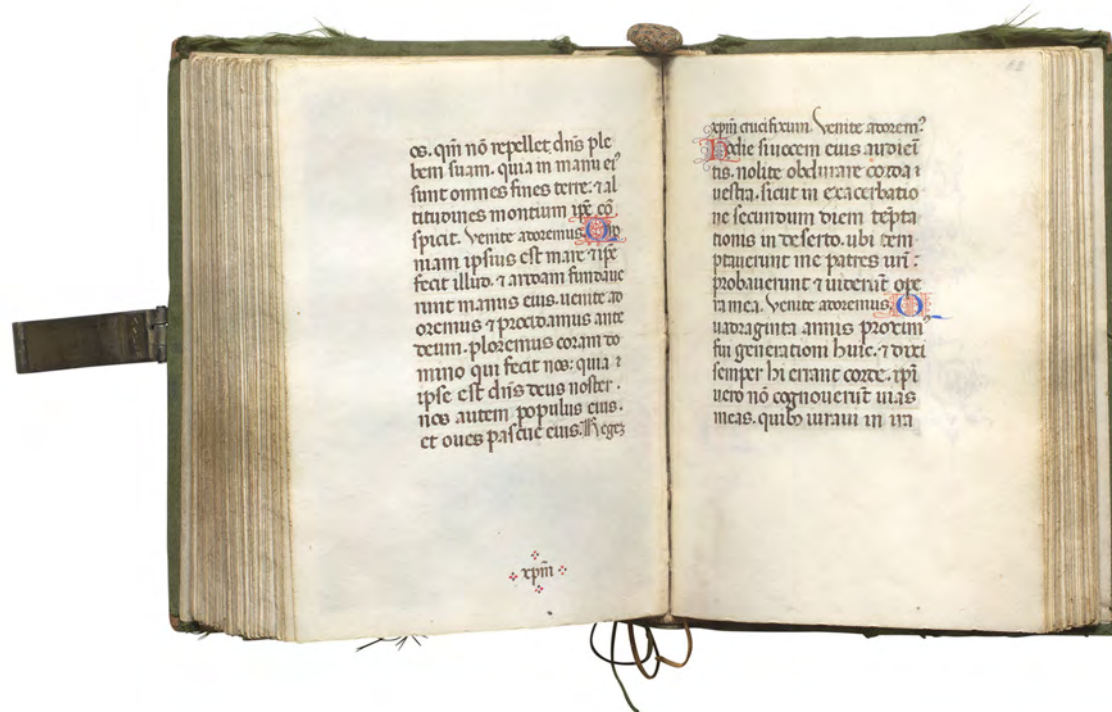 os. qm̄ nō repellet dn̄s ple
bem suam. quia in manu eiꝰ
sunt omnes fines terre: ⁊ al
titudines montium ip̄e cō
spicit. Venite adoremus. Quo
niam ipsius est mare ⁊ ip̄e
fecit illud. ⁊ aridam fundaue
runt manus eius. uenite ad
oremus ⁊ procidamus ante
deum. ploremus coram do
mino qui fecit nos: quia ⁊
ipse est dn̄s deus noster.
nos autem populus eius.
et oues pascue eius. Regeꝫ
xpm̄
xpm̄ crucifixum. Venite adoremꝰ
Hodie si uocem eius audieri
tis. nolite obdurare corda
uestra. sicut in exacerbatio
ne secundum diem tēpta
tionis in deserto. ubi tem
ptauerunt me patres ur̄i:
probauerunt ⁊ uiderūt ope
ra mea. Venite adoremus. Q
uadraginta annis proximꝰ
fui generationi huic. ⁊ dixi
semper hi errant corde. ip̄i
uero nō cognouerūt uias
meas. quibꝫ iuraui in ira